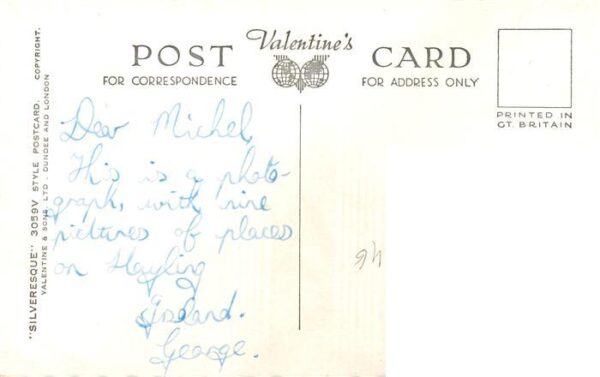 "SILVERESQUE" 3059V STYLE POSTCARD. COPYRIGHT.
VALENTINE & SONS, LTD. DUNDEE AND LONDON
Valentine's
POST CARD
FOR CORRESPONDENCE
FOR ADDRESS ONLY
PRINTED IN
GT. BRITAIN
Dear Michel,
This is a photo-
graph, with nine
pictures of places
on Hayling
Island.
George.